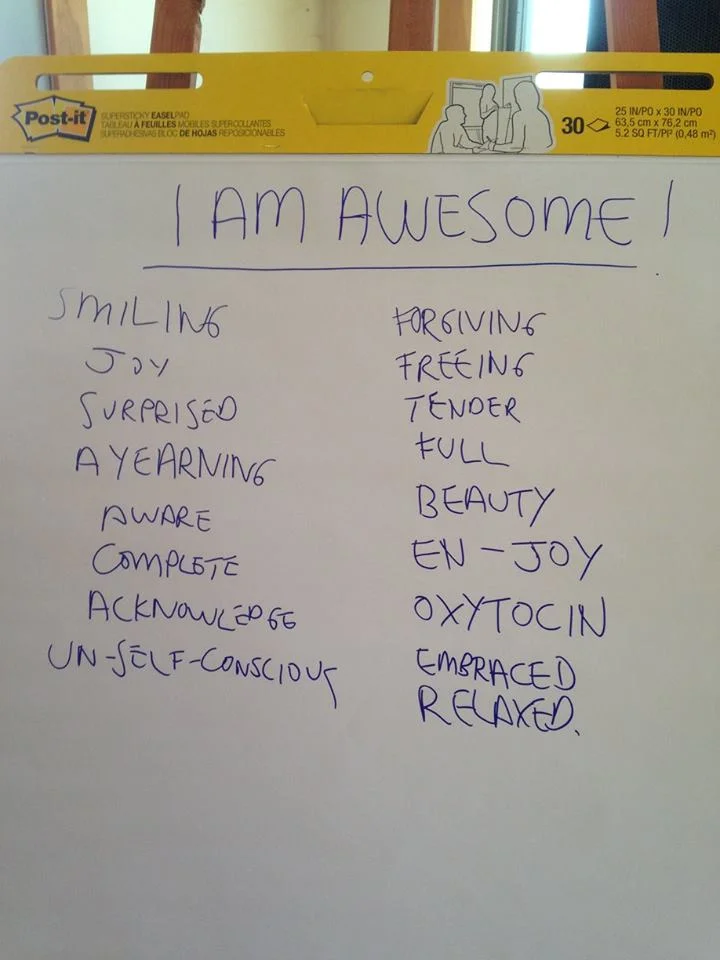 Post-it
SUPERSTICKY EASELPAD
TABLEAU À FEUILLES MOBILES SUPER COLLANTES
SUPERADHESIVAS BLOC DE HOJAS REPOSICIONABLES
30
25 IN/PO x 30 IN/PO
63,5 cm x 76,2 cm
5.2 SQ FT/PI² (0,48 m²)
I AM AWESOME!
SMILING
JOY
SURPRISED
A YEARNING
AWARE
COMPLETE
ACKNOWLEDGE
UN-SELF-CONSCIOUS
FORGIVING
FREEING
TENDER
FULL
BEAUTY
EN-JOY
OXYTOCIN
EMBRACED
RELAXED.